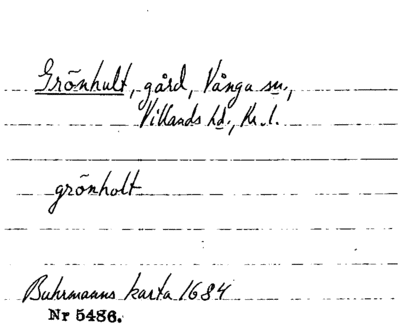 Grönhult, gård, Vånga sn.,
Villands hd., Kr.l.
grönholt
Buhrmanns karta 1684
Nr 5486.